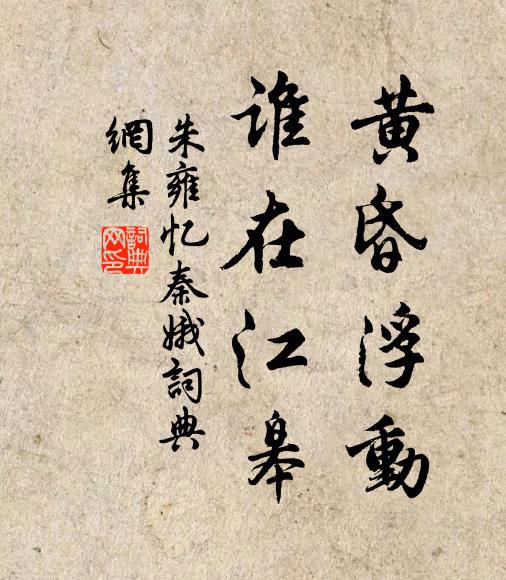 黄昏浮動
誰在江皋
朱雍忆秦娥詞典
網集
詞典
网印